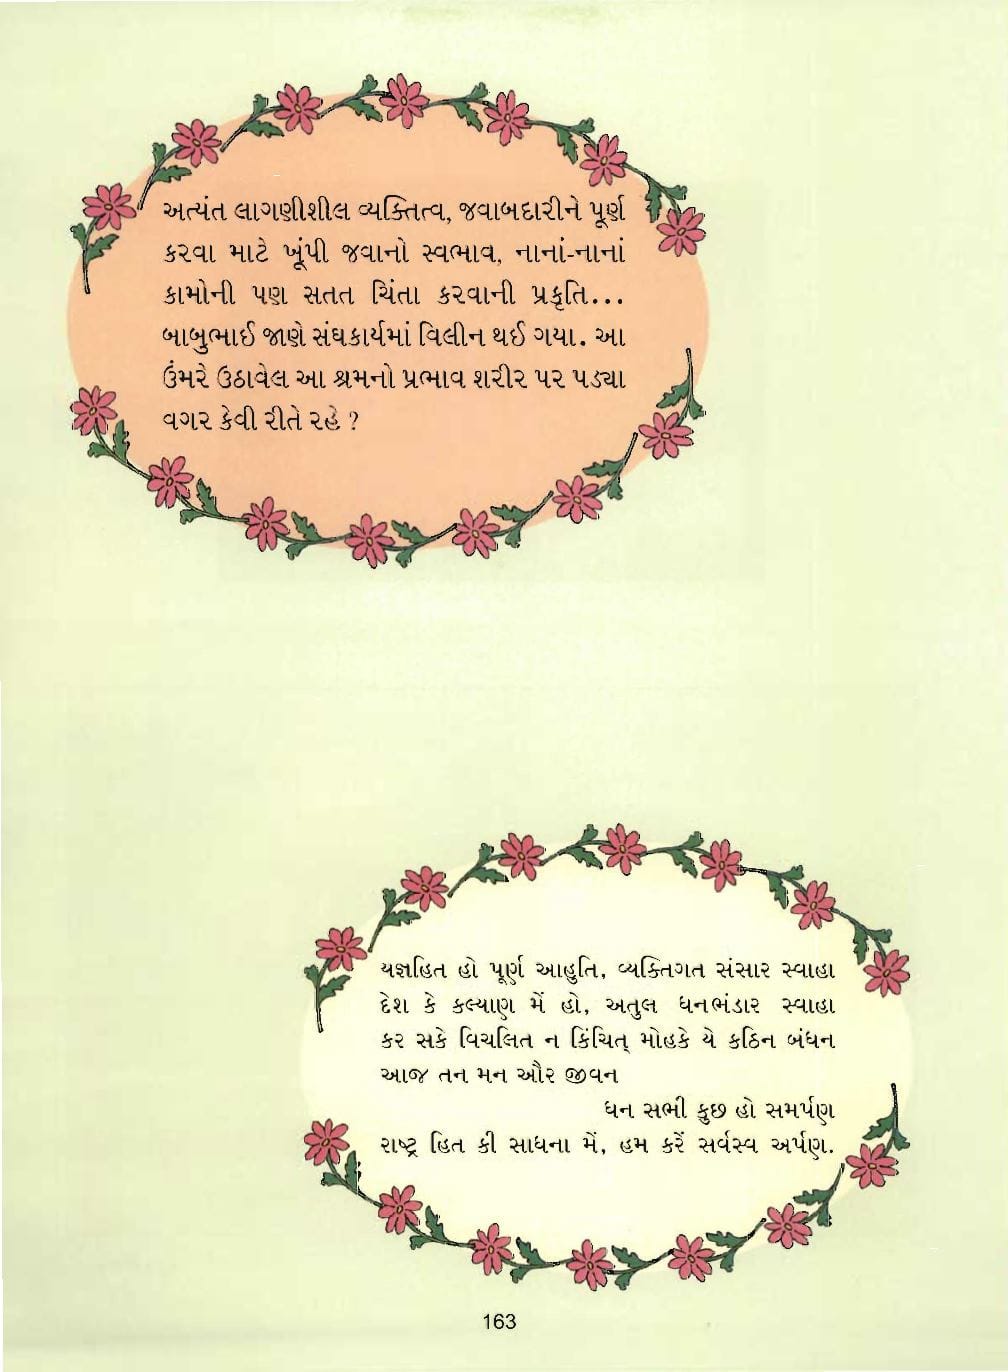 અત્યંત લાગણીશીલ વ્યક્તિત્વ, જવાબદારીને પૂર્ણ
કરવા માટે ખૂંપી જવાનો સ્વભાવ, નાનાં-નાનાં
કામોની પણ સતત ચિંતા કરવાની પ્રકૃતિ...
બાબુભાઈ જાણે સંઘકાર્યમાં વિલીન થઈ ગયા. આ
ઉંમરે ઉઠાવેલ આ શ્રમનો પ્રભાવ શરીર પર પડ્યા
વગર કેવી રીતે રહે ?
યજ્ઞહિત હો પૂર્ણ આહુતિ, વ્યક્તિગત સંસાર સ્વાહા
દેશ કે કલ્યાણ મેં હો, અતુલ ધનભંડાર સ્વાહા
કર સકે વિચલિત ન કિંચિત્ મોહકે યે કઠિન બંધન
આજ તન મન ઔર જીવન
ધન સભી કુછ હો સમર્પણ
રાષ્ટ્ર હિત કી સાધના મેં, હમ કરેં સર્વસ્વ અર્પણ.
163